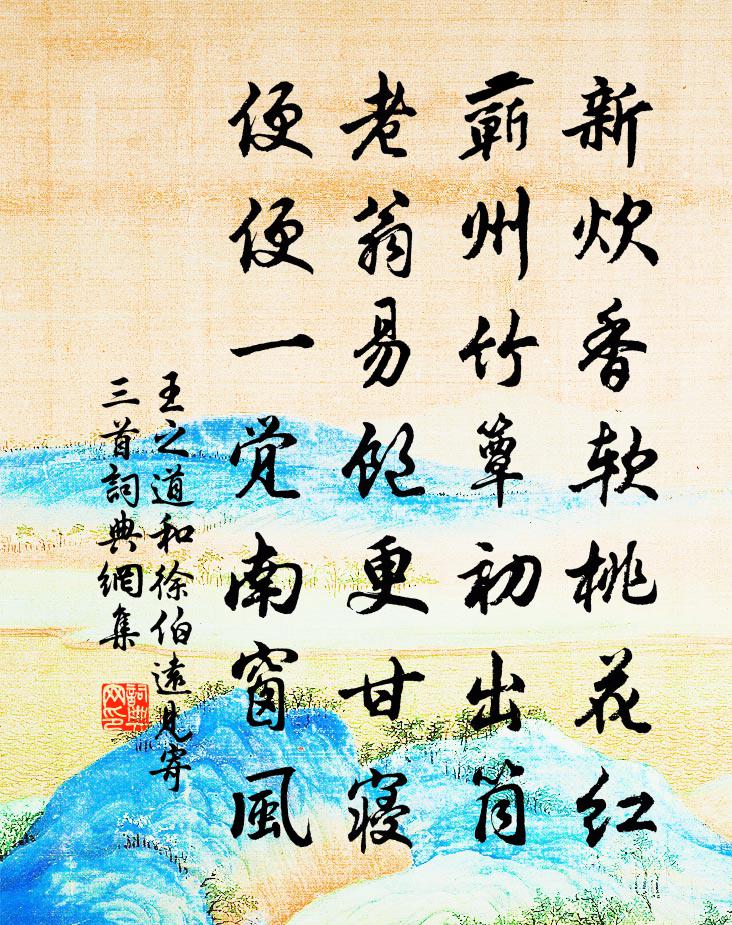 新炊香软桃花红
蕲州竹簟初出筒
老翁易飽更甘寝
便便一觉南窗風
王之道和徐伯遠見寄
三首詞典網集